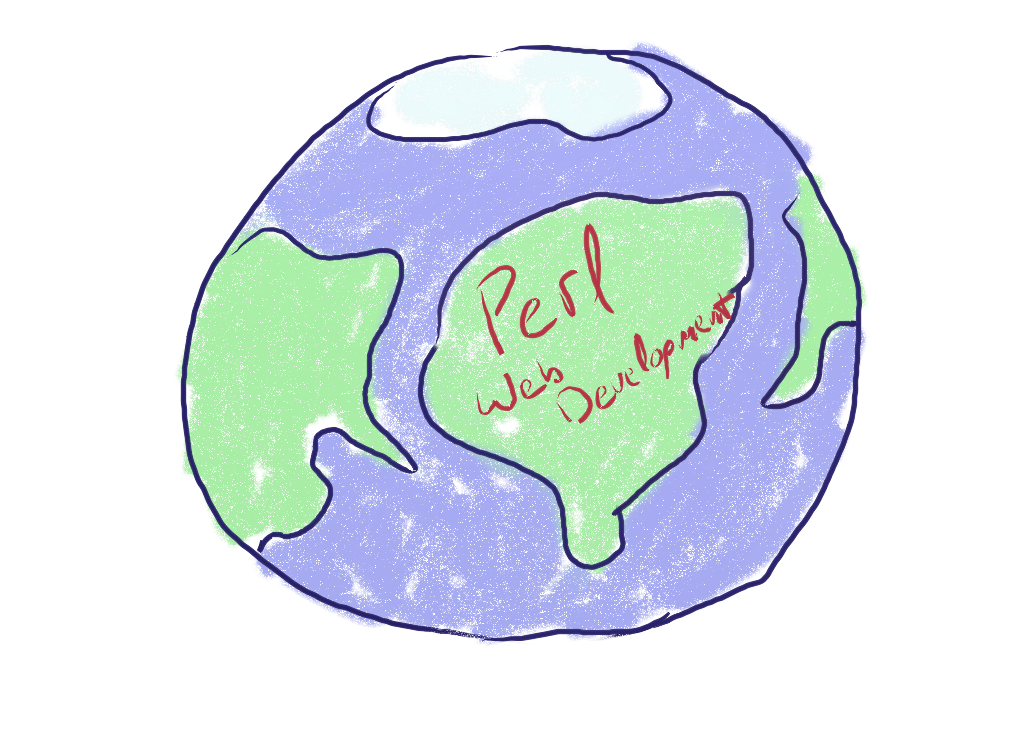 Perl
Web
Development